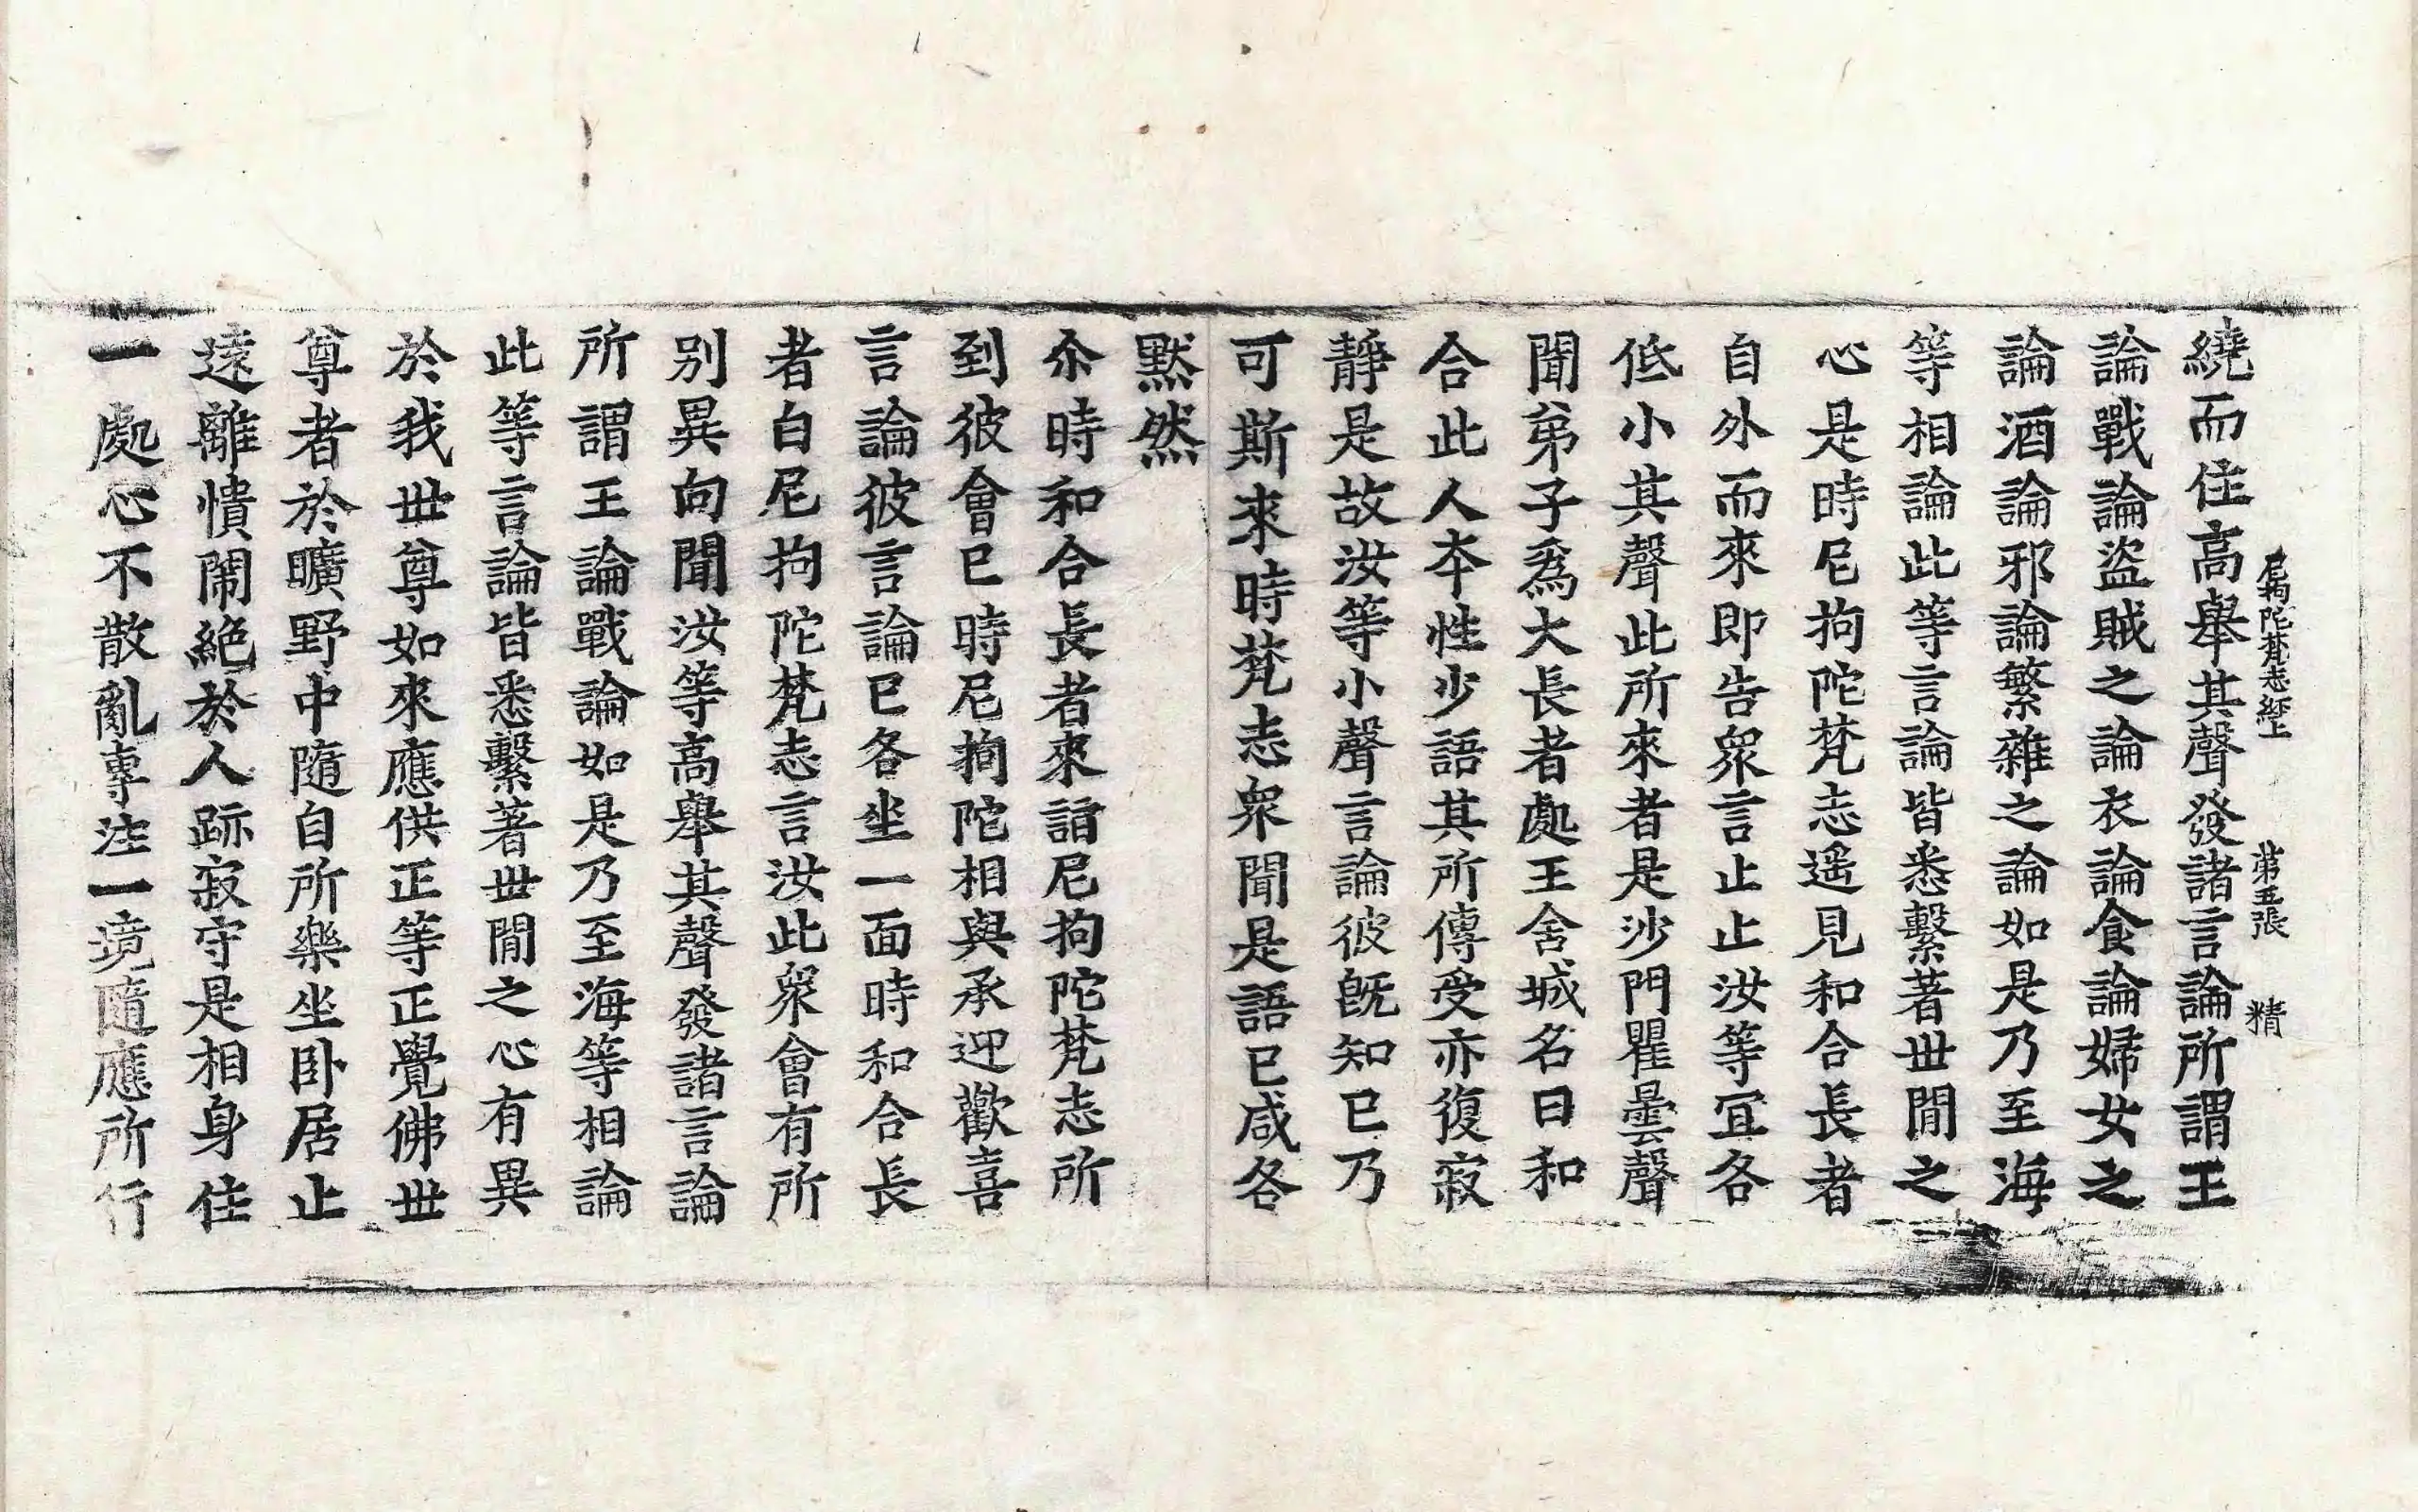 尼拘陀梵志經上 第五張 精
繞而住高舉其聲發諸言論所謂王
論戰論盜賊之論衣論食論婦女之
論酒論邪論繁雜之論如是乃至海
等相論此等言論皆悉繫著世閒之
心是時尼拘陀梵志遥見和合長者
自外而來即告衆言止止汝等冝各
低小其聲此所來者是沙門瞿曇聲
聞弟子爲大長者處王舍城名曰和
合此人夲性少語其所傳受亦復寂
靜是故汝等小聲言論彼旣知已乃
可斯來時梵志衆聞是語已咸各
默然
尒時和合長者來詣尼拘陀梵志所
到彼會已時尼拘陀相與承迎歡喜
言論彼言論已各坐一面時和合長
者白尼拘陀梵志言汝此衆會有所
別異向聞汝等高舉其聲發諸言論
所謂王論戰論如是乃至海等相論
此等言論皆悉繫著世閒之心有異
於我世尊如來應供正等正覺佛世
尊者於曠野中隨自所樂坐卧居止
遠離憒閙絕於人跡寂守是相身住
一處心不散亂專注一境隨應所行